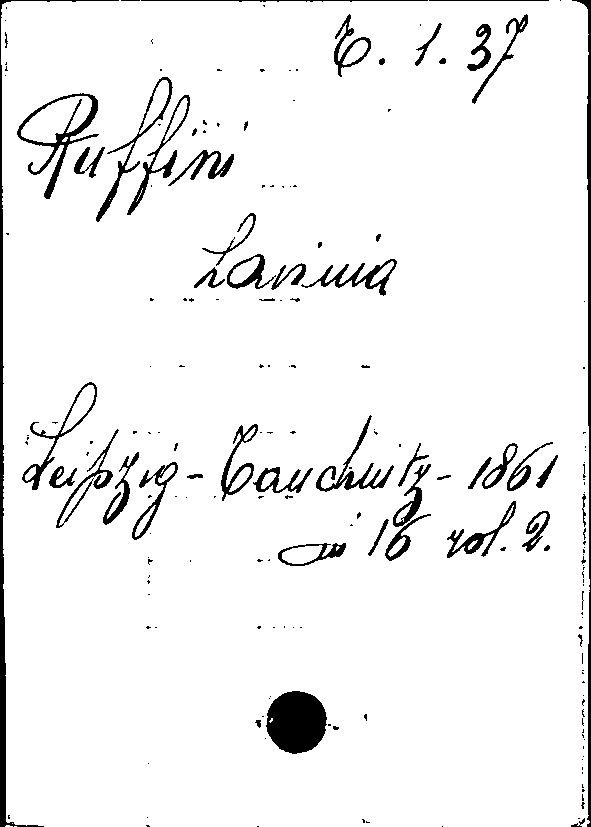 C. 1. 37
Ruffini
Lavinia
Leipzig - Tauchnitz - 1861
in 16 vol. 2.